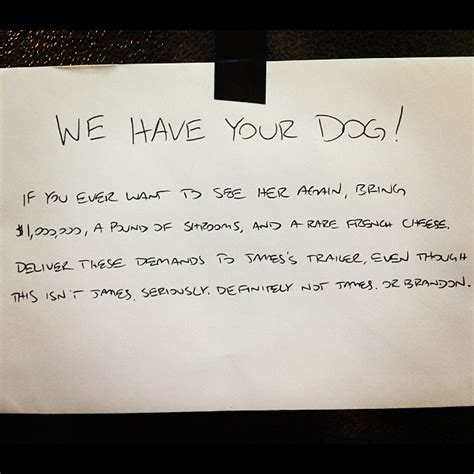 WE HAVE YOUR DOG!
IF YOU EVER WANT TO SEE HER AGAIN, BRING
$1,000,000, A POUND OF SHROOMS, AND A RARE FRENCH CHEESE.
DELIVER THESE DEMANDS TO JAMES'S TRAILER, EVEN THOUGH
THIS ISN'T JAMES. SERIOUSLY. DEFINITELY NOT JAMES. OR BRANDON.